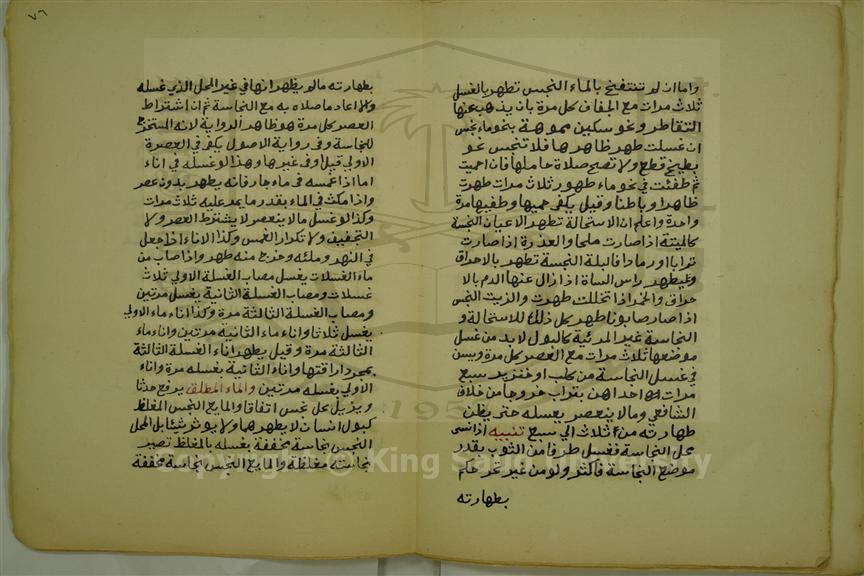 واما ان لم تنتفخ بالماء النجس تطهر بالغسل
ثلاث مرات مع الجفاف كل مرة بان يذهب عنها
التقاطر ونحو سكين مموهة بنحو ماء نجس
ان غسلت طهر ظاهرها فلا تنجس نحو
بطيخ قطع ولا تصح صلاة حاملها فان احميت
ثم طفئت في نحو ماء طهور ثلاث مرات طهرت
ظاهرا وباطنا وقيل يكفي حميها وطفيها مرة
واحدة واعلم ان الاستحالة تطهر الاعيان النجسة
كالميتة اذا صارت ملحا والعذرة اذا صارت
ترابا او رمادا فالبلة النجسة تطهر بالاحراق
ويطهر راس الشاة اذا زال عنها الدم بالا
حراق والخمر اذا تخللت طهرت والزيت النجس
اذا صار صابونا طهر كل ذلك للاستحالة و
النجاسة غير المرئية كالبول لا بد من غسل
موضعها ثلاث مرات مع العصر كل مرة ويسن
في غسل النجاسة من كلب او خنزير سبع
مرات احداهن بتراب خروجا من خلاف
الشافعي ومالا ينعصر بغسله حتى يظن
طهارته من ثلاث الى سبع تنبيه اذا نسى
محل النجاسة فغسل طرفا من الثوب بقدر
موضع النجاسة فاكثر ولو من غير تحر حكم
بطهارته
٧٦
بطهارته مالم يظهر انها في غير المحل الذي غسله
والا اعاد ما صلاه به مع النجاسة ثم ان اشتراط
العصر كل مرة هو ظاهر الرواية لانه المستخرج
للنجاسة وفي رواية الاصول يكفي في العصرة
الاولى قيل وفي غيرها وهذا لو غسله في اناء
اما اذا غمسه في ماء جار فانه يطهر بدون عصر
واذا مكث في الماء بقدر ما يمر عليه ثلاث مرات
وكذا لو غسل مالا ينعصر لا يشترط العصر ولا
التجفيف ولا تكرار الغمس وكذا الاناء اذا جعل
في النهر وملئه وخرج منه طهر واذا صاب من
ماء الغسلات يغسل مصاب الغسلة الاولى ثلاث
غسلات ومصاب الغسلة الثانية يغسل مرتين
ومصاب الغسلة الثالثة مرة وكذا اناء ماء الاولى
يغسل ثلاثا واناء ماء الثانية مرتين واناء ماء
الثالثة مرة وقيل يطهر اناء الغسلة الثالثة
بمجرد اراقتها واناء الثانية بغسله مرة واناء
الاولى بغسله مرتين والماء المطلق يرفع حدثا
ويزيل عن نجس اتفاقا والمايع النجس المغلظ
كبول انسان لا يطهرها ولا يوثر شيئا بل المحل
النجس نجاسة مخففة بغسله بالمغلظ تصير
نجاسته مغلظة والمايع النجس نجاسة مخففة